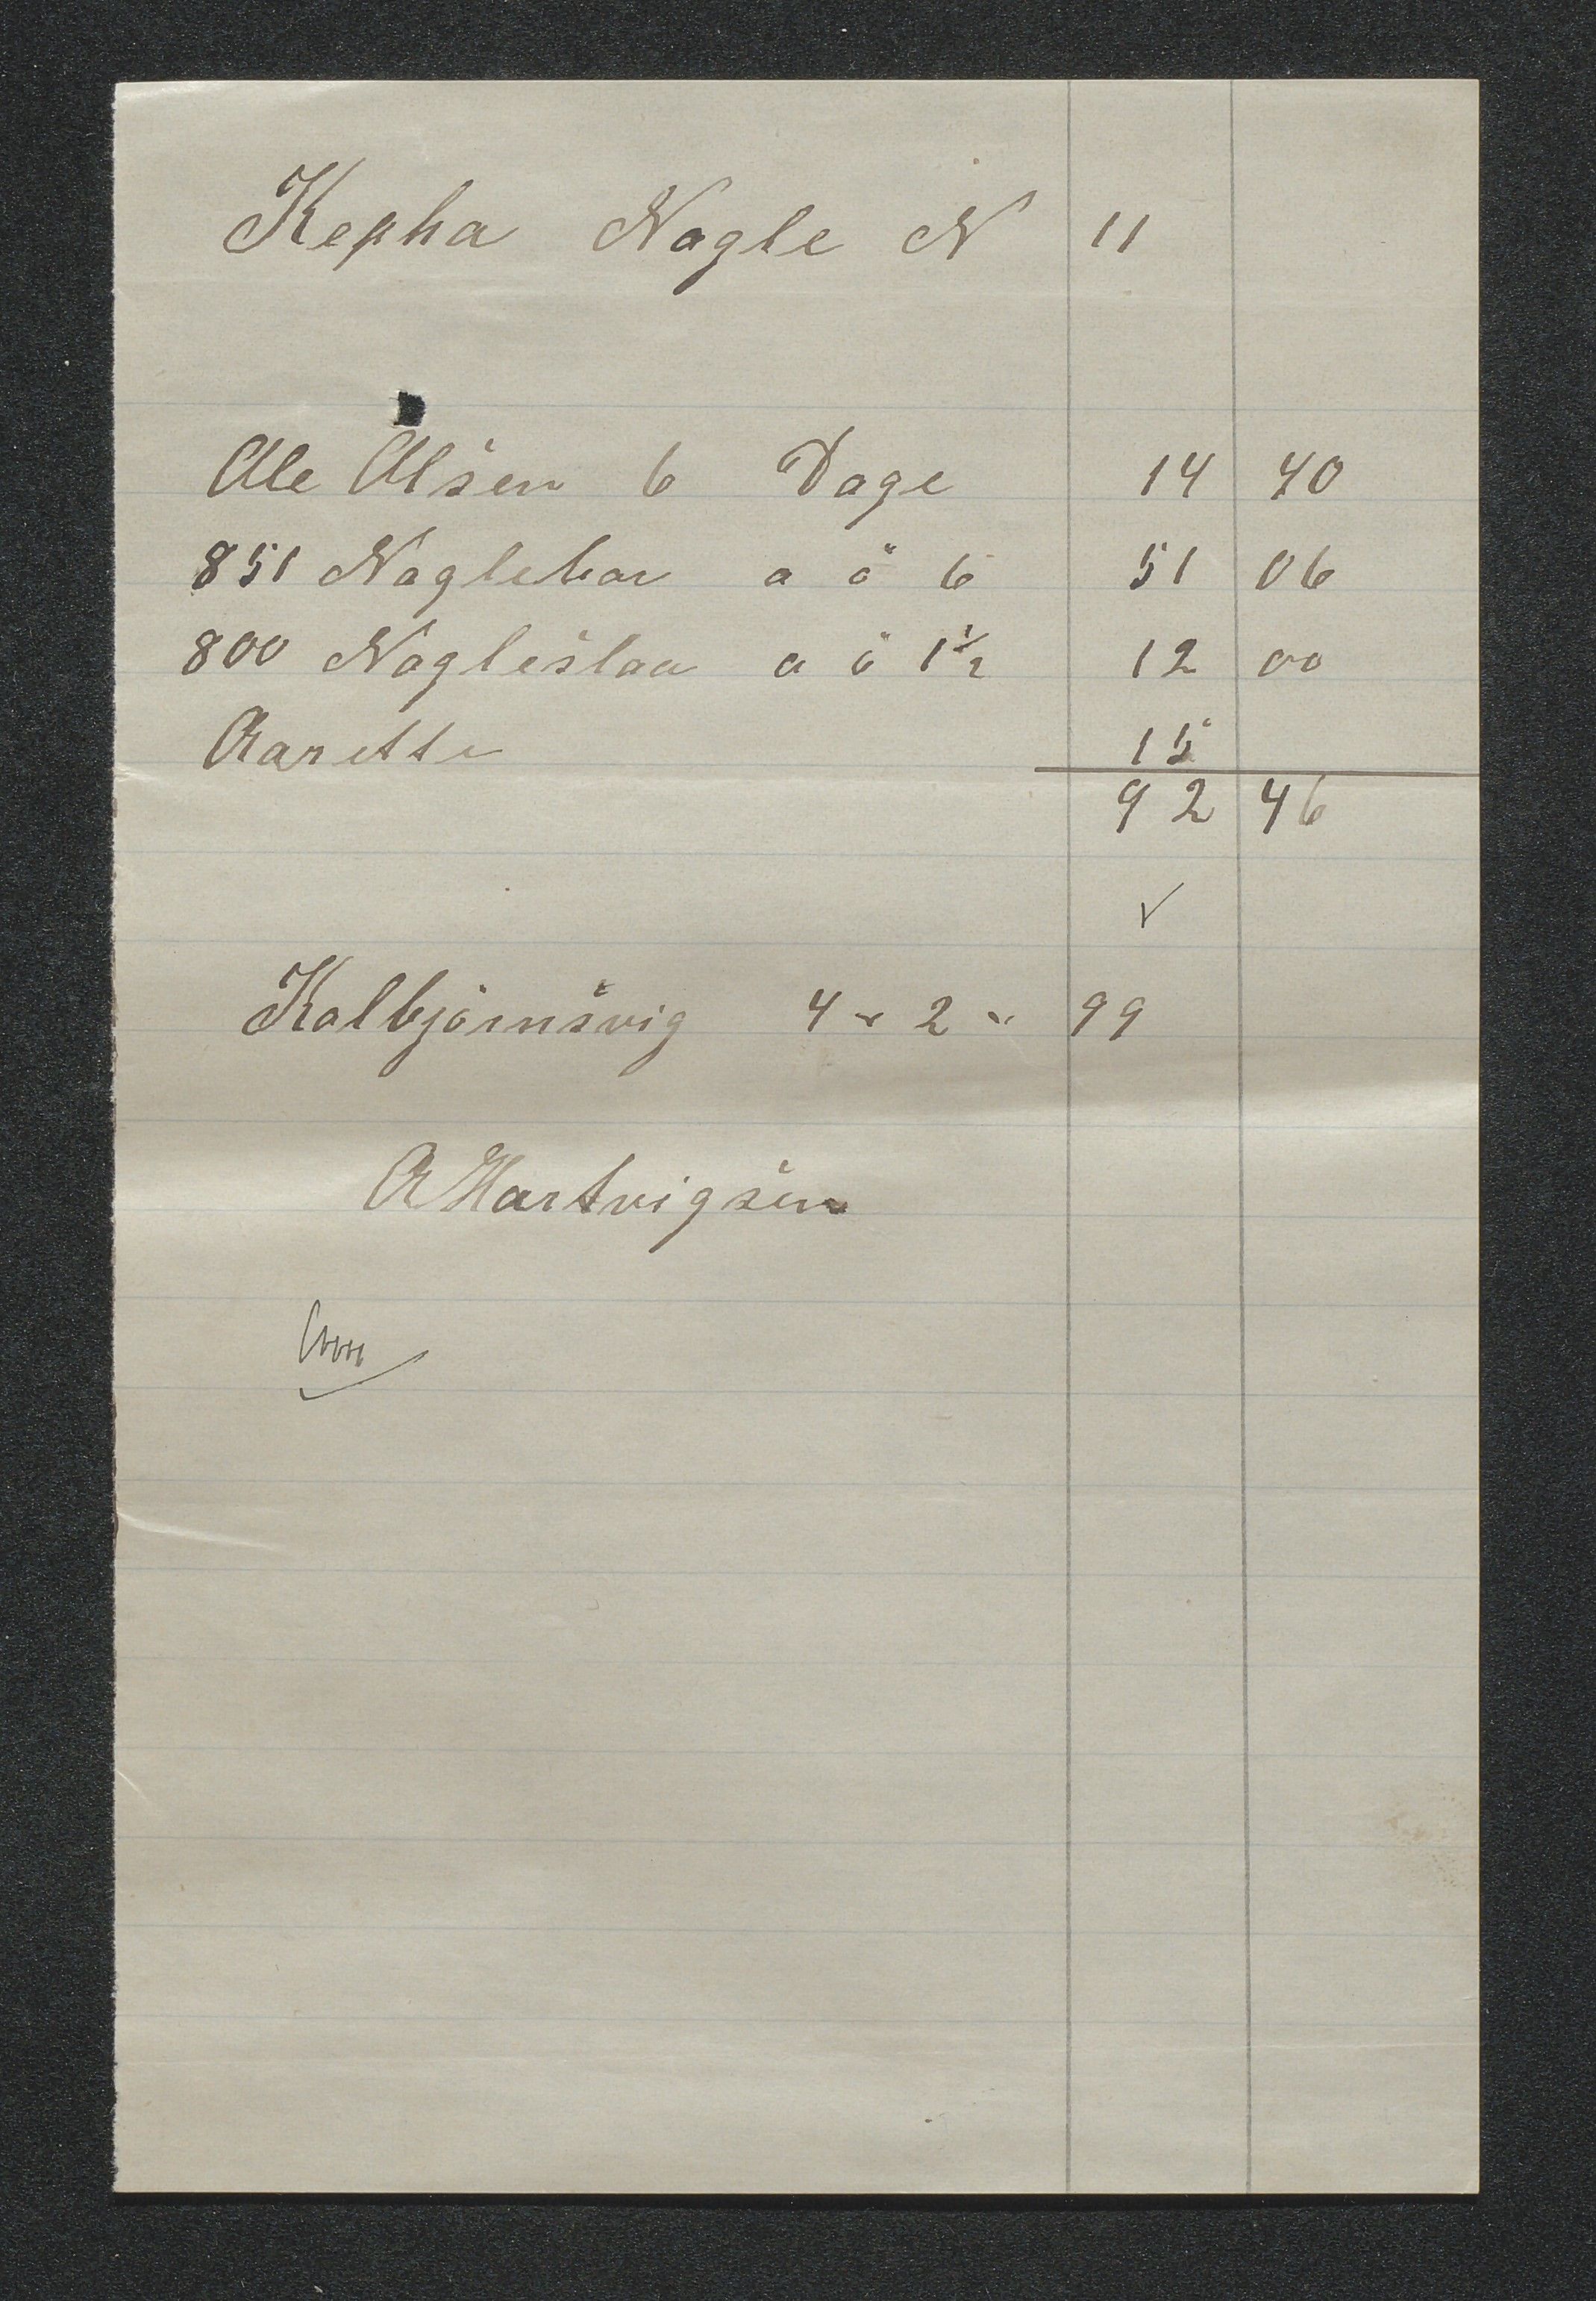 Kepha Nagle N 11
Ole Olsen 6 Dage 14 40
851 Naglebor a ö 6 51 06
800 Nagleslaa a ö 1½ 12 00
Aarette 15
92 46
✓
Kolbjörnsvig 4 " 2 " 99
A Hartvigsen